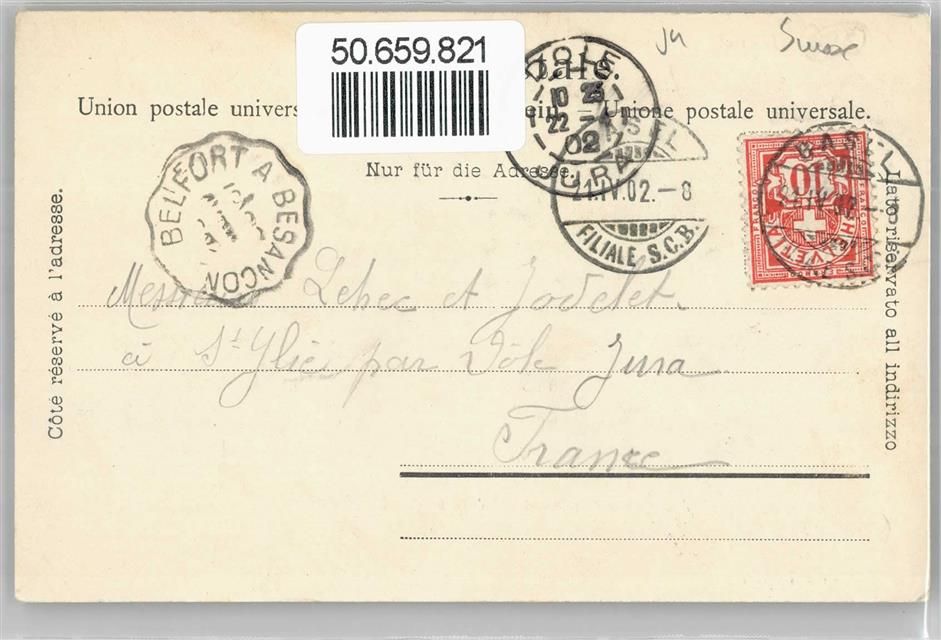 50.659.821
Suisse
tale.
Union postale univers ein. — Unione postale universale.
Nur für die Adresse.
DOLE
22 - 4
02
JURA
BASEL
21.IV.02.-8
FILIALE S.C.B.
BASEL
10
HELVETIA
BELFORT A BESANCON
Côté réservé à l'adresse.
Lato riservato all indirizzo
Messieurs Lehec et Jodelet
à St Ylie par Dôle Jura
France